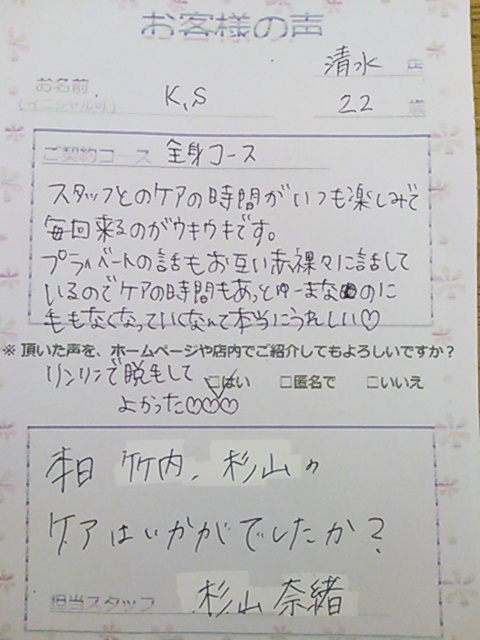 お客様の声
清水 店
お名前 K,S 22 歳
(イニシャル可)
ご契約コース 全身コース
スタッフとのケアの時間がいつも楽しみで
毎回来るのがウキウキです。
プライベートの話もお互い赤裸々に話して
いるのでケアの時間もあっとゆーまなのに
毛もなくなっていくなんて本当にうれしい♡
※ 頂いた声を、ホームページや店内でご紹介してもよろしいですか？
リンリンで脱毛して ☑はい □匿名で □いいえ
よかった♡♡♡
本日 竹内、杉山の
ケアはいかがでしたか？
担当スタッフ 杉山 奈緒